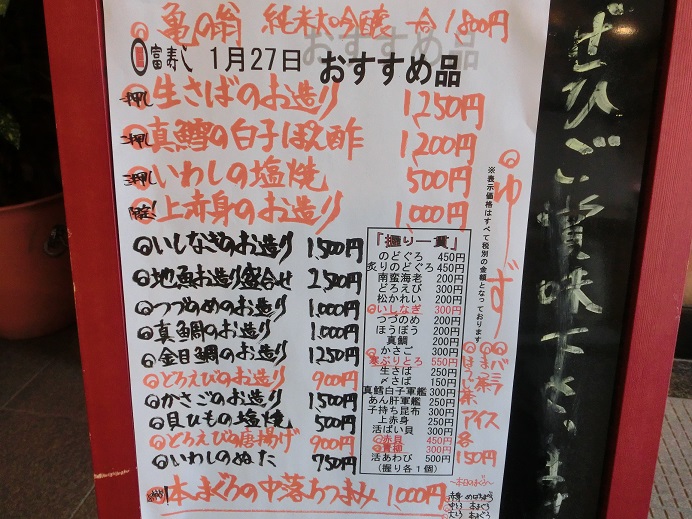 亀の翁 純米大吟醸 一合 1,800円
富寿し 1月27日 おすすめ品
押し 生さばのお造り 1,250円
押し 真鱈の白子ぽん酢 1,200円
押し いわしの塩焼 500円
限定! 上赤身のお造り 1,000円
◎いしなぎのお造り 1,500円
◎地魚お造り盛合せ 2,500円
◎つづのめのお造り 1,000円
◎真鯛のお造り 1,000円
◎金目鯛のお造り 1,250円
◎どろえびのお造り 900円
◎かさごのお造り 1,500円
◎貝ひもの塩焼 500円
◎どろえびの唐揚げ 900円
◎いわしのぬた 750円
本まぐろの中落ちつまみ 1,000円
「握り一貫」
のどぐろ 450円
炙りのどぐろ 450円
南蛮海老 200円
どろえび 300円
松かれい 200円
◎いしなぎ 300円
つづのめ 200円
ほうぼう 200円
真鯛 200円
かさご 300円
◎寒ぶりとろ 550円
生さば 250円
〆さば 150円
真鱈白子軍艦 300円
あん肝軍艦 250円
子持ち昆布 300円
上赤身 250円
活ばい貝 300円
◎赤貝 450円
◎青柳 300円
活あわび 500円
(握り各1個)
※表示価格はすべて税別の金額となっております
◎ゆーず
バニラ
まっ茶
ほうじ茶
アイス
各
150円
~本日のまぐろ~
赤身 めばちまぐろ
中とろ 本まぐろ
大とろ 本まぐろ
ぜひご賞味下さいませ